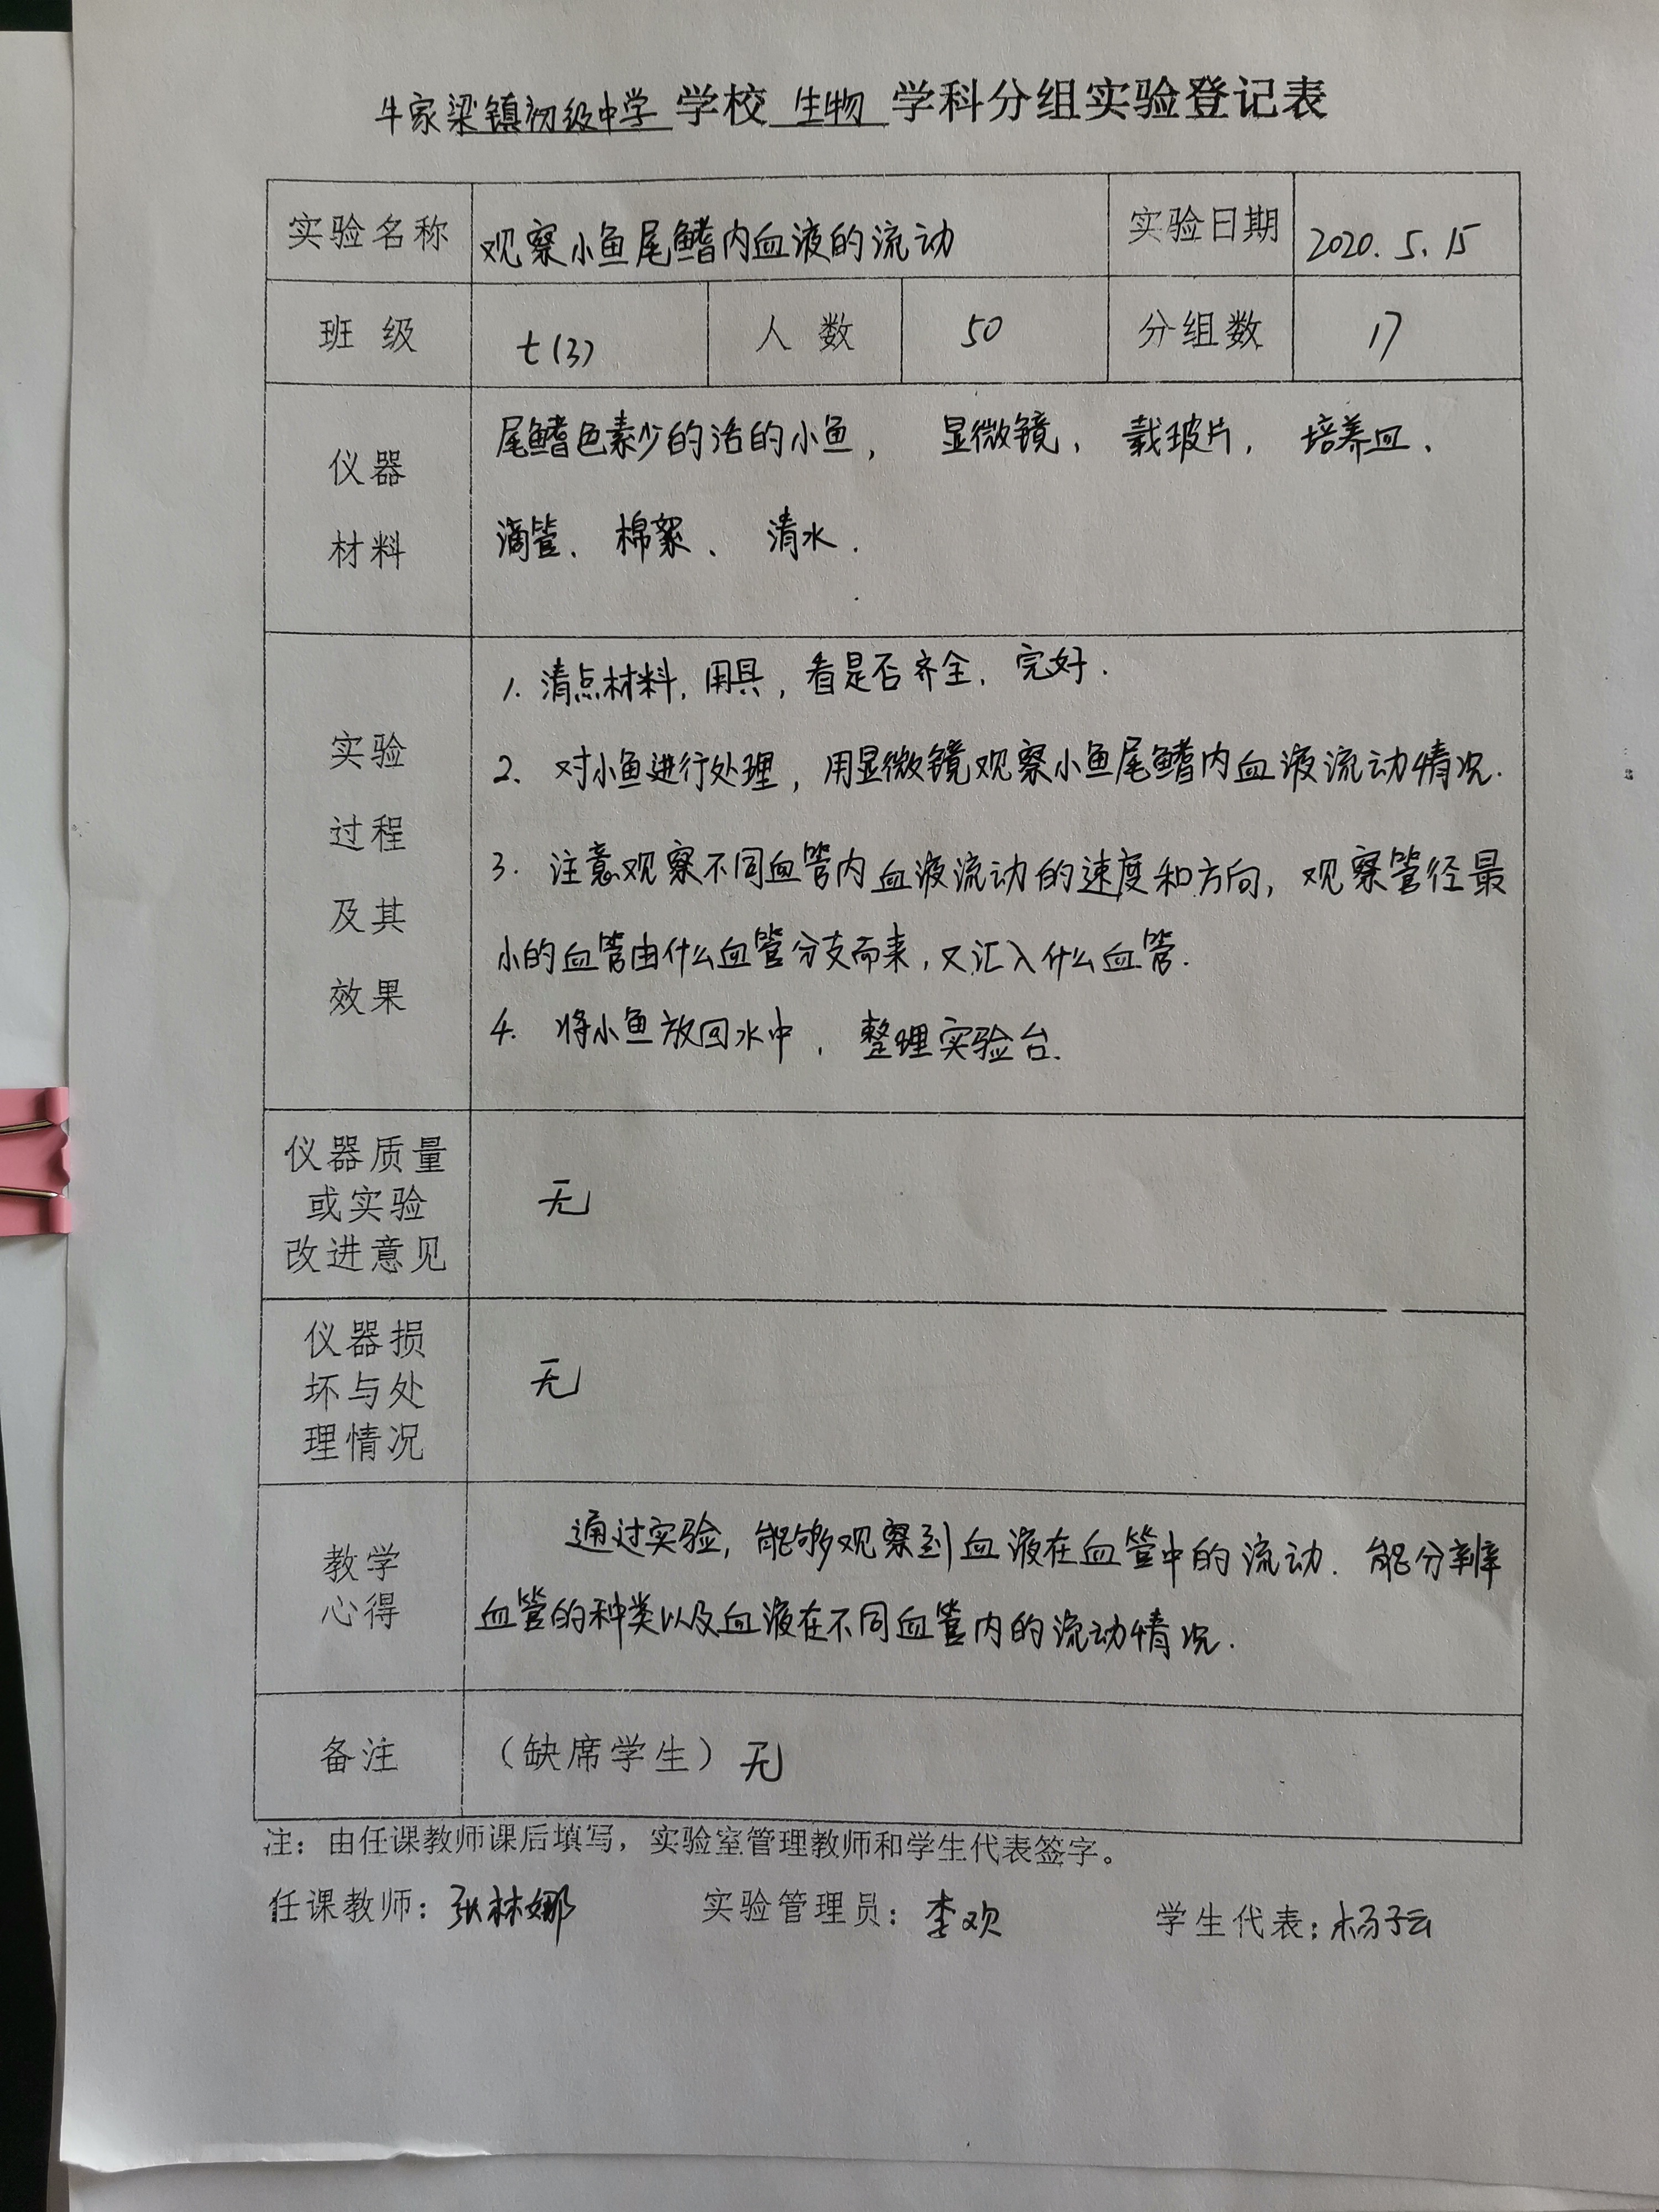 牛家梁镇初级中学 学校 生物 学科分组实验登记表
实验名称 观察小鱼尾鳍内血液的流动 实验日期 2020.5.15
班 级 七(3) 人 数 50 分组数 17
仪器
材料
尾鳍色素少的活的小鱼, 显微镜、载玻片, 培养皿、
滴管、棉絮、清水.
实验
过程
及其
效果
1. 清点材料,用具,看是否齐全、完好.
2、对小鱼进行处理,用显微镜观察小鱼尾鳍内血液流动情况.
3. 注意观察不同血管内血液流动的速度和方向,观察管径最
小的血管由什么血管分支而来,又汇入什么血管.
4. 将小鱼放回水中,整理实验台.
仪器质量
或实验
改进意见
无
仪器损
坏与处
理情况
无
教学
心得
通过实验,能够观察到血液在血管中的流动. 能分辨
血管的种类以及血液在不同血管内的流动情况.
备注 (缺席学生)无
注:由任课教师课后填写,实验室管理教师和学生代表签字。
任课教师:张林娜 实验管理员:李欢 学生代表:杨子云